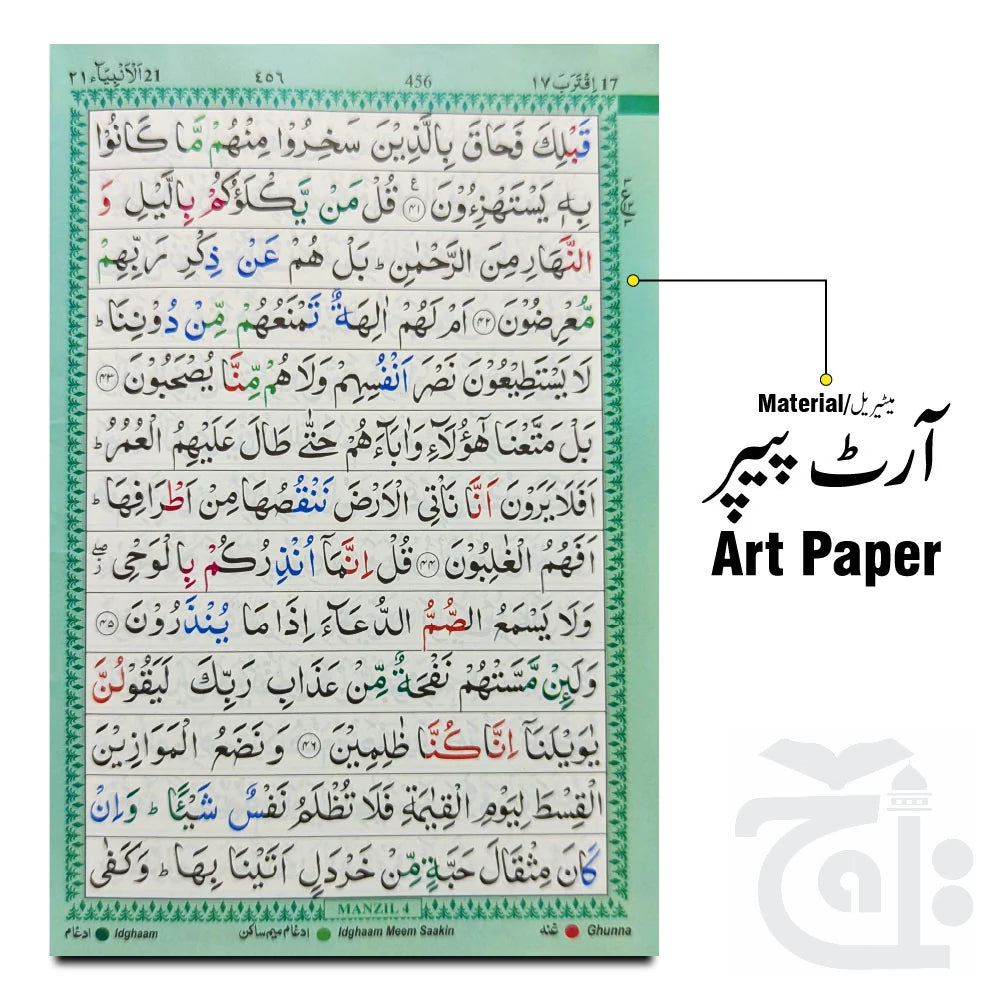 17 اِقْتَرَبَ ١٧ 456 ٤٥٦ 21 اَلْاَنْۢبِيَآء ٢١
قَبْلِكَ فَحَاقَ بِالَّذِيْنَ سَخِرُوْا مِنْهُمْ مَّا كَانُوْا
بِهٖ يَسْتَهْزِءُوْنَ ﴿۴۱﴾ قُلْ مَنْ يَّكْلَؤُكُمْ بِالَّيْلِ وَ
النَّهَارِ مِنَ الرَّحْمٰنِ ؕ بَلْ هُمْ عَنْ ذِكْرِ رَبِّهِمْ
مُّعْرِضُوْنَ ﴿۴۲﴾ اَمْ لَهُمْ اٰلِهَةٌ تَمْنَعُهُمْ مِّنْ دُوْنِنَا ؕ
لَا يَسْتَطِيْعُوْنَ نَصْرَ اَنْفُسِهِمْ وَلَا هُمْ مِّنَّا يُصْحَبُوْنَ ﴿۴۳﴾
بَلْ مَتَّعْنَا هٰٓؤُلَآءِ وَاٰبَآءَهُمْ حَتّٰى طَالَ عَلَيْهِمُ الْعُمُرُ ؕ
اَفَلَا يَرَوْنَ اَنَّا نَاْتِى الْاَرْضَ نَنْقُصُهَا مِنْ اَطْرَافِهَا ؕ
اَفَهُمُ الْغٰلِبُوْنَ ﴿۴۴﴾ قُلْ اِنَّمَآ اُنْذِرُكُمْ بِالْوَحْىِ ۖ
وَلَا يَسْمَعُ الصُّمُّ الدُّعَآءَ اِذَا مَا يُنْذَرُوْنَ ﴿۴۵﴾
وَلَئِنْ مَّسَّتْهُمْ نَفْحَةٌ مِّنْ عَذَابِ رَبِّكَ لَيَقُوْلُنَّ
يٰوَيْلَنَآ اِنَّا كُنَّا ظٰلِمِيْنَ ﴿۴۶﴾ وَنَضَعُ الْمَوَازِيْنَ
الْقِسْطَ لِيَوْمِ الْقِيٰمَةِ فَلَا تُظْلَمُ نَفْسٌ شَيْئًا ؕ وَاِنْ
كَانَ مِثْقَالَ حَبَّةٍ مِّنْ خَرْدَلٍ اَتَيْنَا بِهَا ؕ وَكَفٰى
MANZIL 4
ادغام Idghaam ادغام میم ساکن Idghaam Meem Saakin غنه Ghunna
Material/میٹیریل
آرٹ پیپر
Art Paper